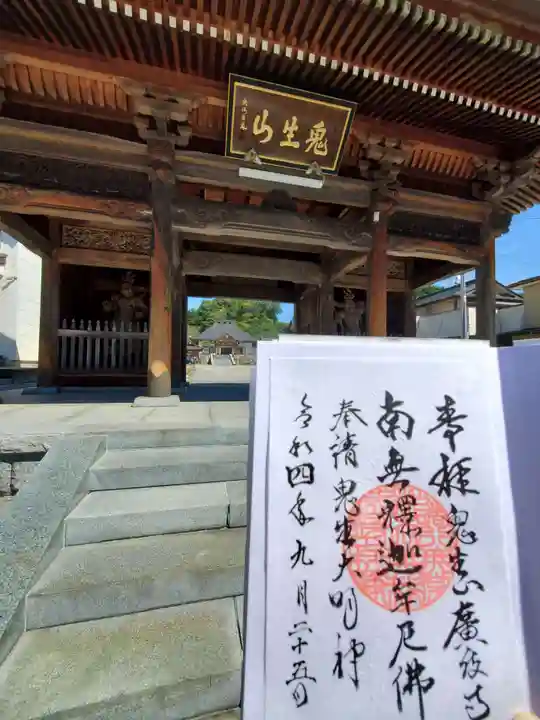 鬼生山
奉拝 鬼生山廣度寺
南無釋迦牟尼佛
奉請鬼生大明神
令和四年九月二十五日